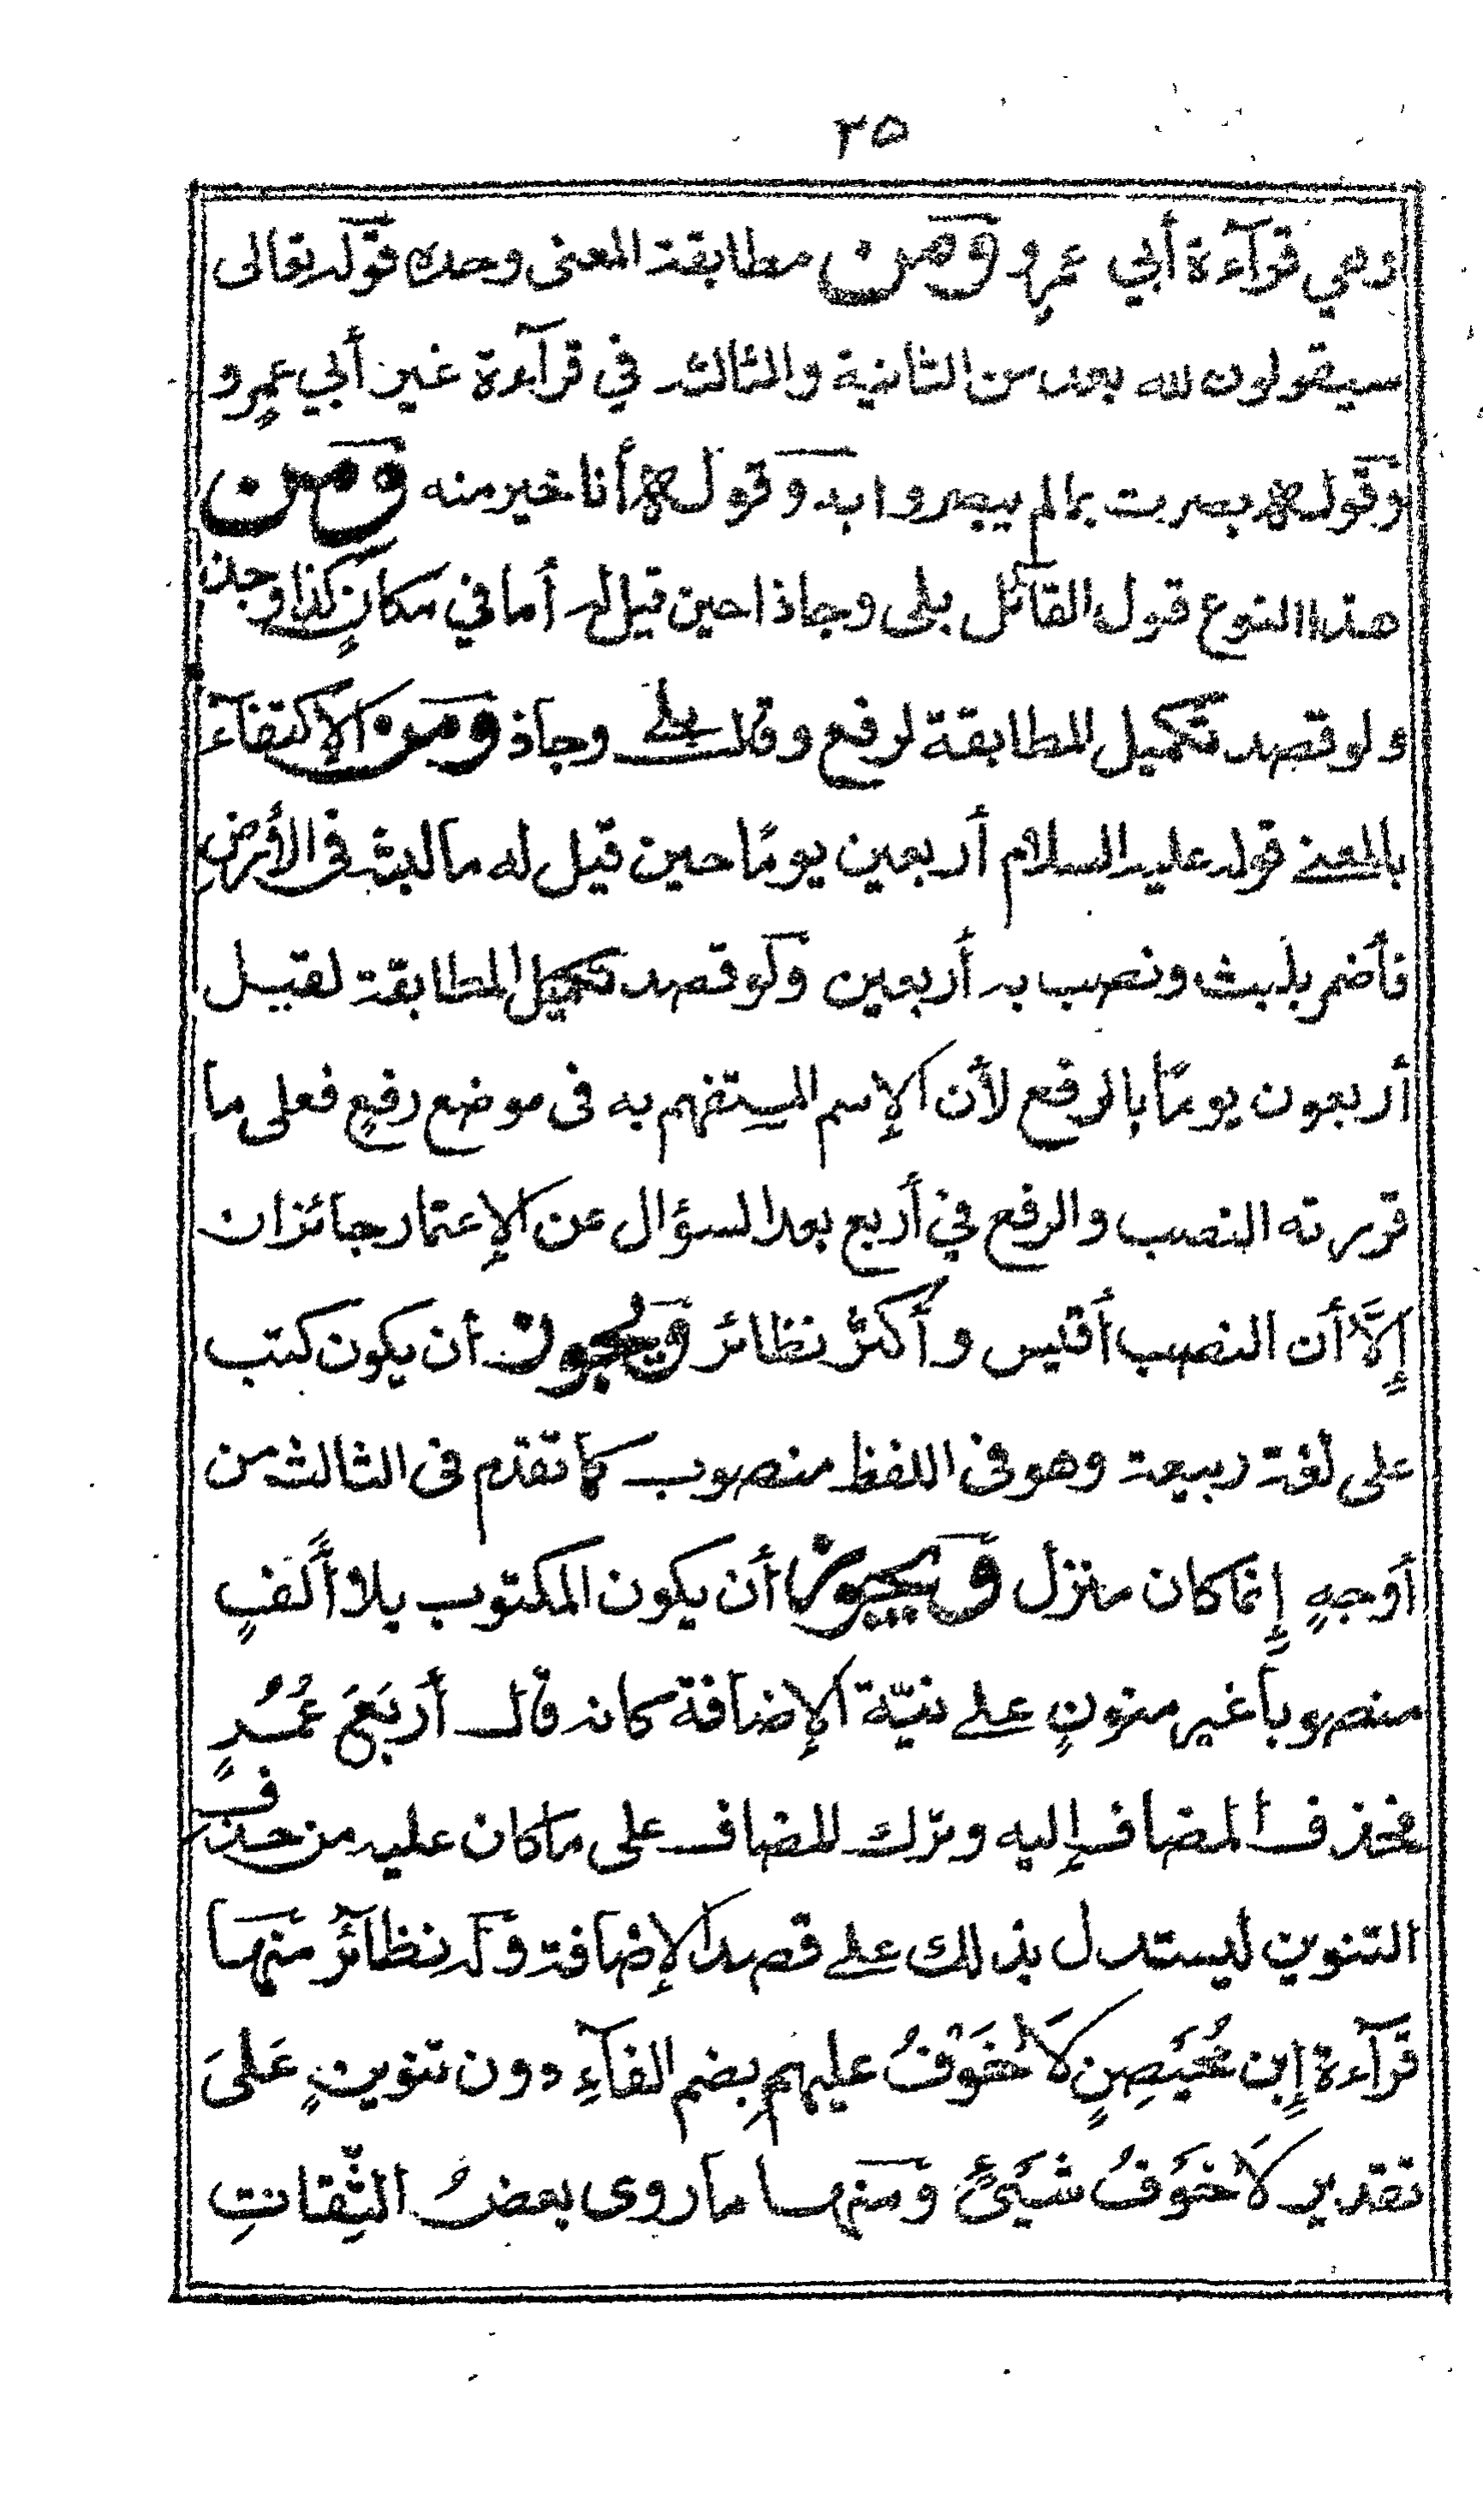 ٢٥
وهي قرآءة أبي عمرٍو ومن مطابقة المعنى وحده قوله تعالى
سيقولون لله بعد من الثانية والثالثه في قرآءة غير أبي عمرٍو
وقوله بصرت بمالم يبصروا به وقوله أنا خير منه ومن
هذا النوع قول القائل بلى وجاذا حين قيل له أما في مكانٍ كذا وجذ
ولو قصد تكميل المطابقة لرفع وقال بلى وجاذ ومن الإكتفآء
بالمعنى قوله عليه السلام أربعين يومًا حين قيل له ما لبثه في الأرض
فأضمر يلبث ونصب به أربعين ولو قصد تكميل المطابقة لقيل
أربعون يومًا بالرفع لأن الإسم المستفهم به في موضع رفعٍ فعلى ما
قررته النصب والرفع في أربع بعد السؤال عن الإعتمار جائزان
إلّا أن النصب أقيس وأكثر نظائر ويجوز أن يكون كتب
على لغة ربيعة وهو في اللفظ منصوب كما تقدم في الثالث من
أوجهٍ إنما كان منزل ويجوز أن يكون المكتوب بلا ألفٍ
منصوبا غير منونٍ على نيّة الإضافة كانه قال أربَعَ عُمُرٍ
فحذف المضاف إليه وترك للمضاف على ما كان عليه من حذف
التنوين ليستدل بذلك على قصد الإضافة وله نظآئرُ منها
قرآءة إبن مُحَيْصِنٍ لَا خَوْفُ عليهم بضم الفآءِ دون تنوينٍ عَلىَ
تقدير لَا خَوْفُ شَيْئٍ ومنها ما روى بعضُ الثِّقاتِ